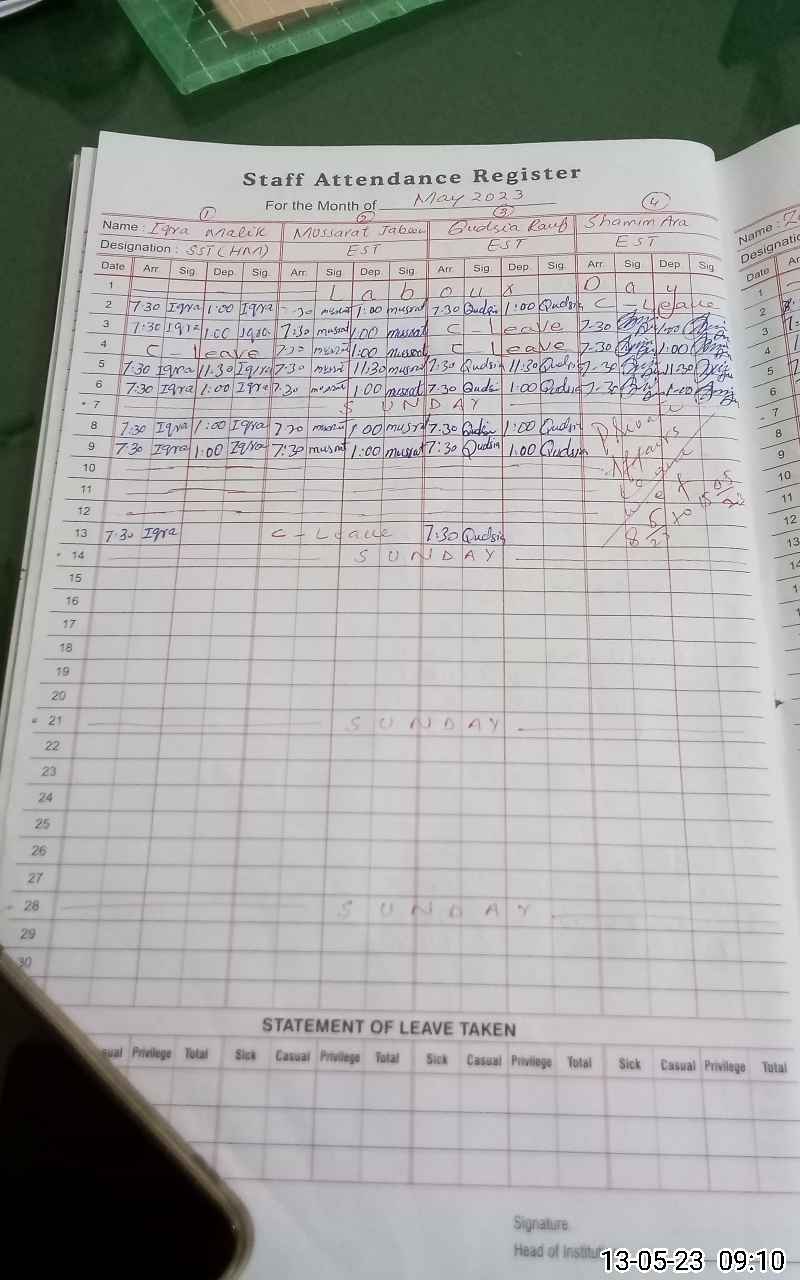 Staff Attendance Register
For the Month of May 2023
1 2 3 4
Name : Iqra Malik Mussarat Jabeen Qudsia Rauf Shamim Ara Name :
Designation : SST (HM) EST EST EST Designation
Date Arr. Sig. Dep. Sig. Arr. Sig. Dep. Sig. Arr. Sig. Dep. Sig. Arr. Sig. Dep. Sig. Date
1 L a b o u r D a y 1
2 7:30 Iqra 1:00 Iqra 7:30 musrat 1:00 musrat 7:30 Qudsia 1:00 Qudsia C - Leave 2
3 7:30 Iqra 1:00 Iqra 7:30 musrat 1:00 musrat C - Leave 7:30 1:00 3
4 C - Leave 7:30 musrat 1:00 musrat C - Leave 7:30 1:00 4
5 7:30 Iqra 11:30 Iqra 7:30 musrat 11:30 musrat 7:30 Qudsia 11:30 Qudsia 7:30 11:30 5
6 7:30 Iqra 1:00 Iqra 7:30 musrat 1:00 musrat 7:30 Qudsia 1:00 Qudsia 7:30 1:00 6
7 S U N D A Y 7
8 7:30 Iqra 1:00 Iqra 7:30 musrat 1:00 musrat 7:30 Qudsia 1:00 Qudsia 8
9 7:30 Iqra 1:00 Iqra 7:30 musrat 1:00 musrat 7:30 Qudsia 1:00 Qudsia Affairs 9
10 10
11 11
12 12
13 7:30 Iqra C - Leave 7:30 Qudsia 13
14 S U N D A Y
15
16
17
18
19
20
21 S U N D A Y
22
23
24
25
26
27
28 S U N D A Y
29
30
STATEMENT OF LEAVE TAKEN
Privilege Total Sick Casual Privilege Total Sick Casual Privilege Total Sick Casual Privilege Total
Signature
Head of Institu
13-05-23 09:10